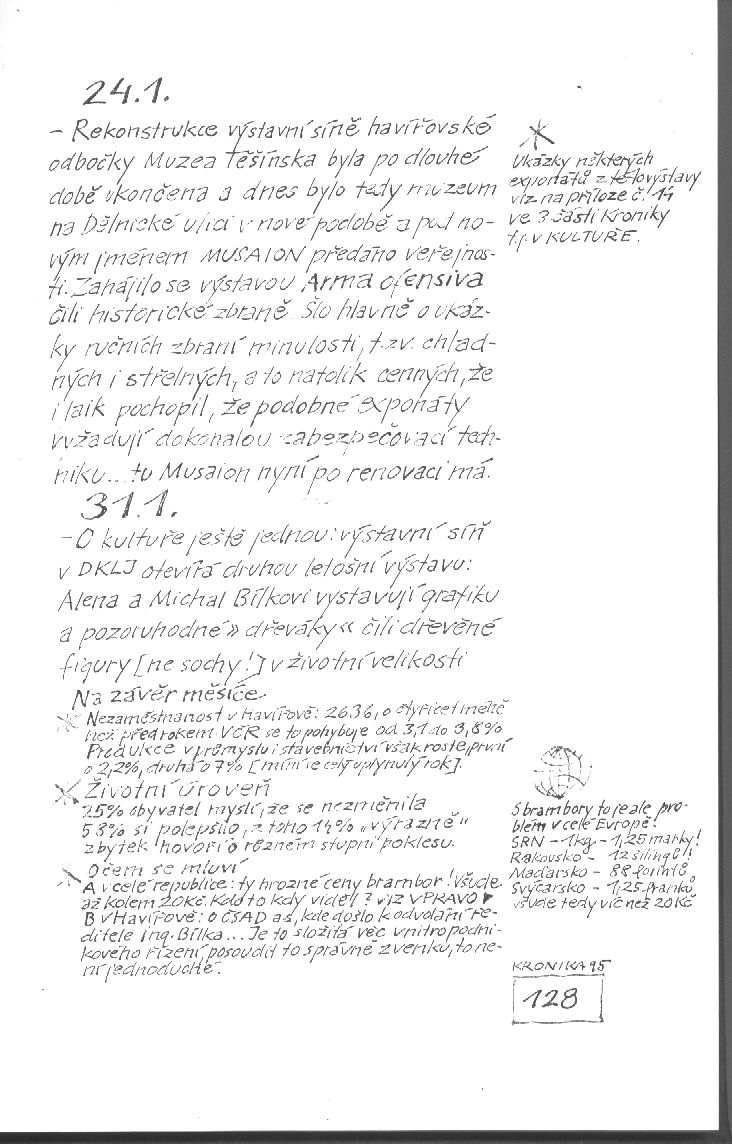 24.1.
- Rekonstrukce výstavní síně havířovské
odbočky Muzea Těšínska byla po dlouhé
době ukončena a dnes bylo tedy muzeum
na Dělnické ulici v nové podobě a pod no-
vým jménem MUSAION předáno veřejnos-
ti. Zahájilo se výstavou Arma ofensiva
čili historické zbraně. Šlo hlavně o ukáz-
ky ručních zbraní minulosti, t.zv. chlad-
ných i střelných, a to natolik cenných, že
i laik pochopil, že podobné exponáty
vyžadují dokonalou zabezpečovací tech-
niku... tu Musaion nyní po renovaci má.
31.1.
- O kultuře ještě jednou: výstavní síň
v DKLJ otevírá druhou letošní výstavu:
Alena a Michal Bílkovi vystavují grafiku
a pozoruhodné » dřeváky « čili dřevěné
figury [ne sochy!] v životní velikosti
Na závěr měsíce
Nezaměstnanost v Havířově: 2636, o čtyřicet méně
než před rokem. V ČR se to pohybuje od 3,1 do 3,8%
Produkce v průmyslu i stavebnictví však roste, první
o 2,2%, druhá o 7% [míní se celý uplynulý rok].
Životní úroveň
25% obyvatel myslí, že se nezměnila
58% si polepšilo, z toho 14% „výrazně"
zbytek hovoří o různém stupni poklesu.
O čem se mluví
A v celé republice: ty hrozné ceny brambor! Všude
až kolem 20Kč. Kdo to kdy viděl? viz VPRAVO
B v Havířově: o ČSAD a.s, kde došlo k odvolání ře-
ditele Ing. Bílka... Je to složitá věc vnitropodni-
kového řízení, posoudit to správně zvenku, to ne-
ní jednoduché.
Ukázky některých
exponátů z této výstavy
viz na příloze č. 14
ve 3. části Kroniky
t.j. v KULTUŘE.
S brambory to je ale pro-
blém v celé Evropě!
SRN - 1kg - 1,25 marky!
Rakousko - 12 šilinků!
Maďarsko - 88 forintů
Švýcarsko - 1,25 franku,
všude tedy víc než 20Kč
KRONIKA 95
128